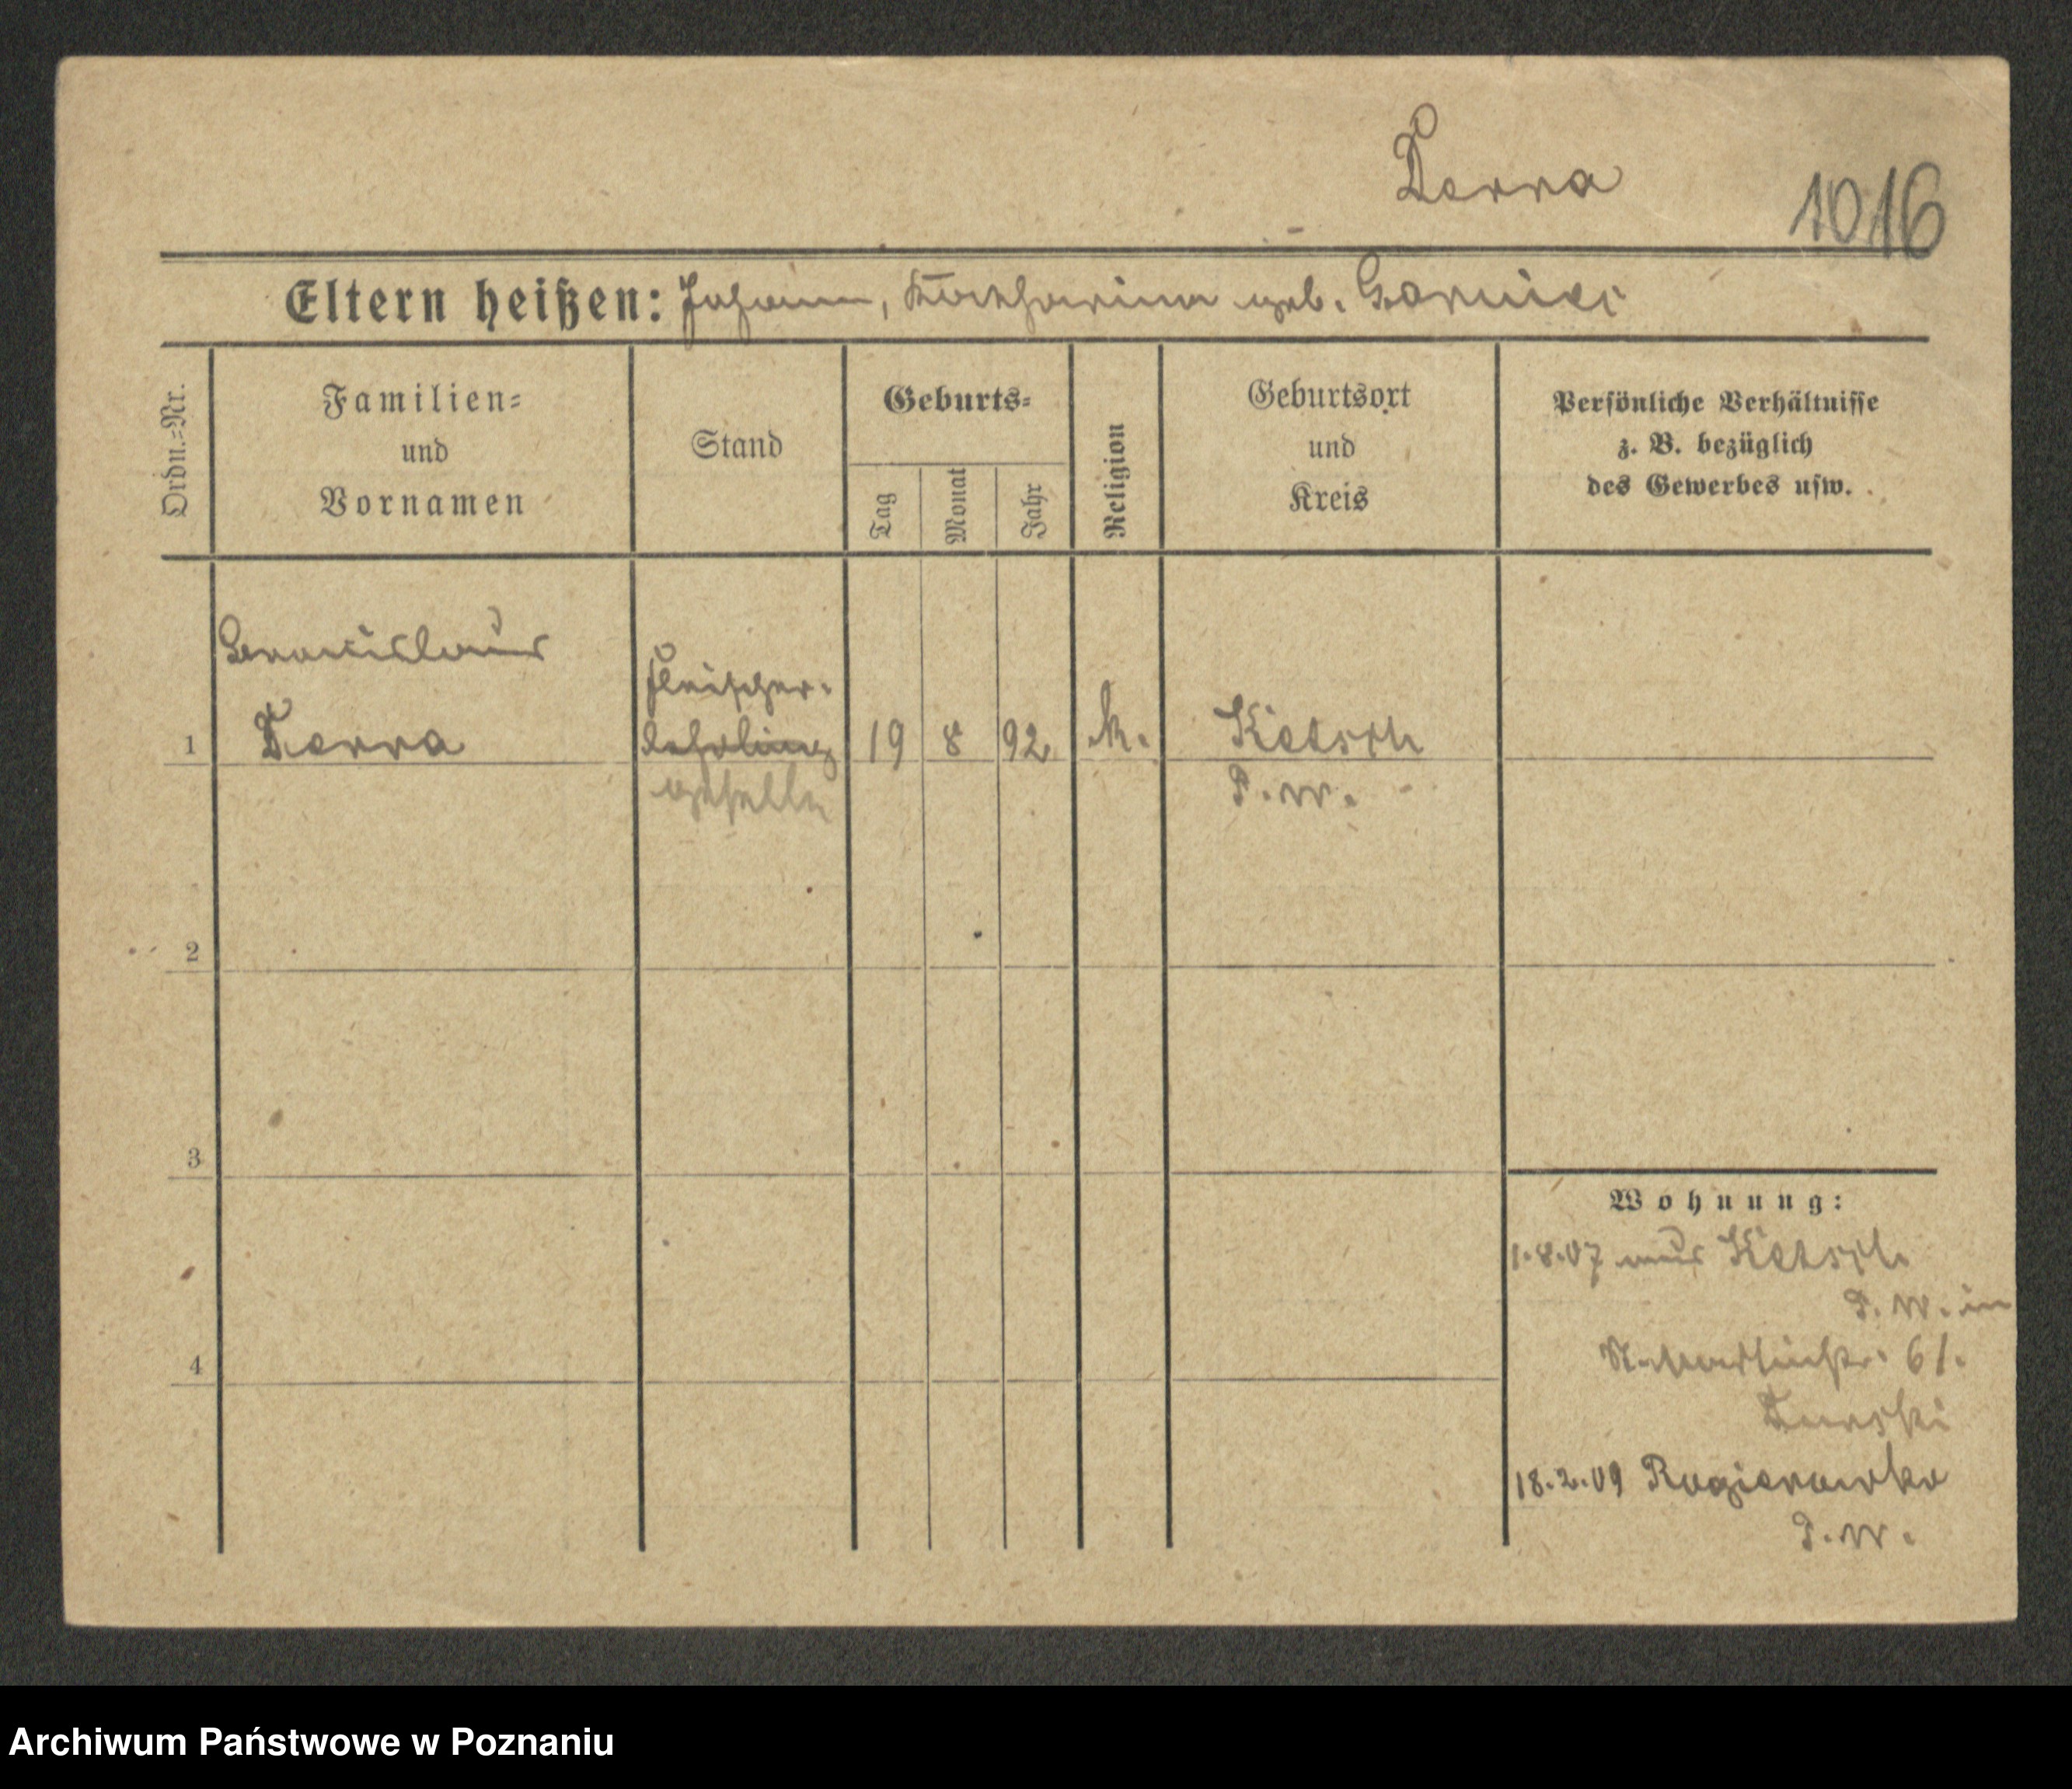 Derra
1016
Eltern heißen: Johann, Katharina geb. Garnitz
Ordn.-Nr.
Familien-
und
Vornamen
Stand
Geburts-
Tag
Monat
Jahr
Religion
Geburtsort
und
Kreis
Persönliche Verhältnisse
z. B. bezüglich
des Gewerbes usw.
Stanislaus
Fleischer-
1 Derra lehrling 19 8 92 k. Ketsch
geselle P. W.
2
3
Wohnung:
1.8.07 aus Ketsch
P. W. in
61.
4
18.2.09 Rogierowko
P. W.
Archiwum Państwowe w Poznaniu